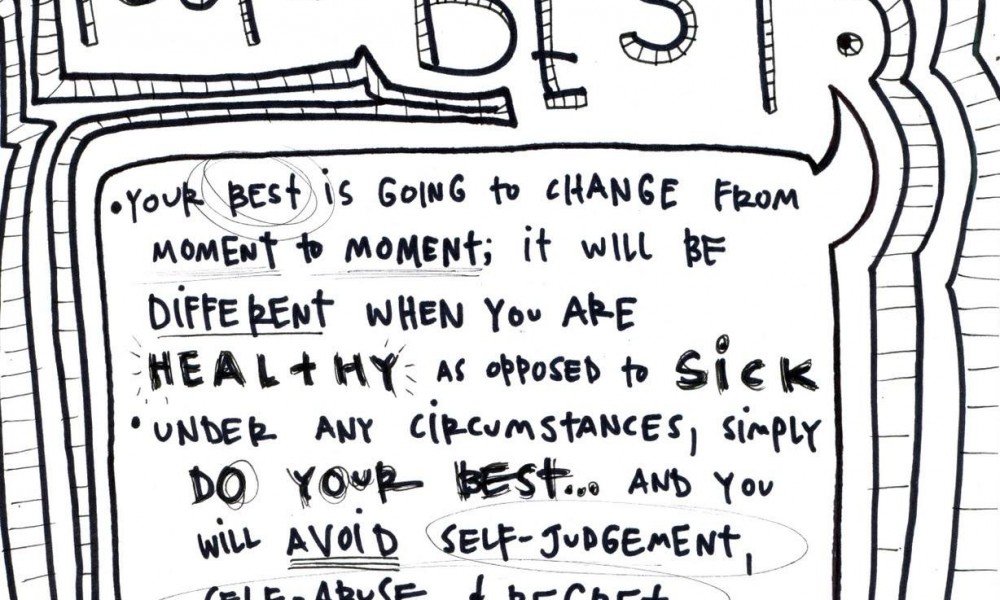 BEST.
• YOUR BEST iS GOING to CHANGE FROM
MOMENT to MOMENT; it WILL BE
DIFFERENT WHEN YOU ARE
HEALTHY AS OPPOSED to SiCK
• UNDER ANY CiRCUMSTANCES, SiMPLY
DO YOUR BEST... AND YOU
WiLL AVOiD SELF-JUDGEMENT,
SELF-ABUSE & REGRET